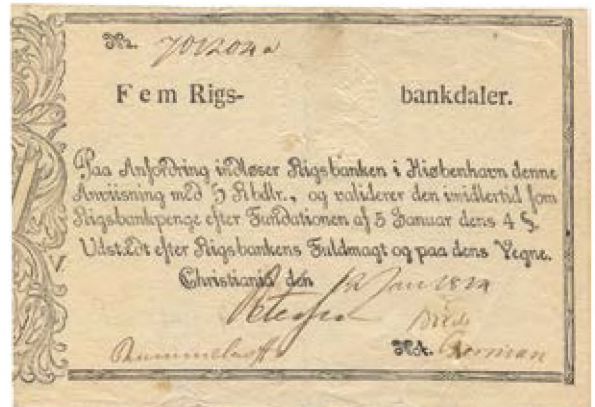 No. 701204 a
Fem Rigs- bankdaler.
Paa Anfordring indløser Rigsbanken i Kiøbenhavn denne
Anviisning med 5 Rbdlr., og validerer den imidlertid som
Rigsbankpenge efter Fundationen af 5 Januar dens 4 §.
Udstædt efter Rigsbankens Fuldmagt og paa dens Vegne.
Christiania den 12 Jan 1814
Not.